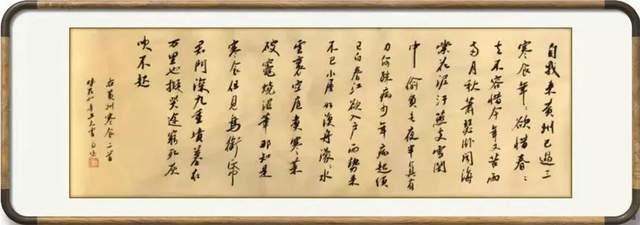 自我来黄州已過三
寒食年年欲惜春春
去不容惜今年又苦雨
兩月秋蕭瑟卧聞海
棠花泥汙燕支雪闇
中偷負去夜半真有
力何殊病少年病起須
已白春江欲入户雨勢来
不已小屋如漁舟濛濛水
雲裏空庖煮寒菜
破竈燒濕葦那知是
寒食但見烏銜帋
君門深九重墳墓在
万里也擬哭途窮死灰
吹不起
右黄州寒食二首